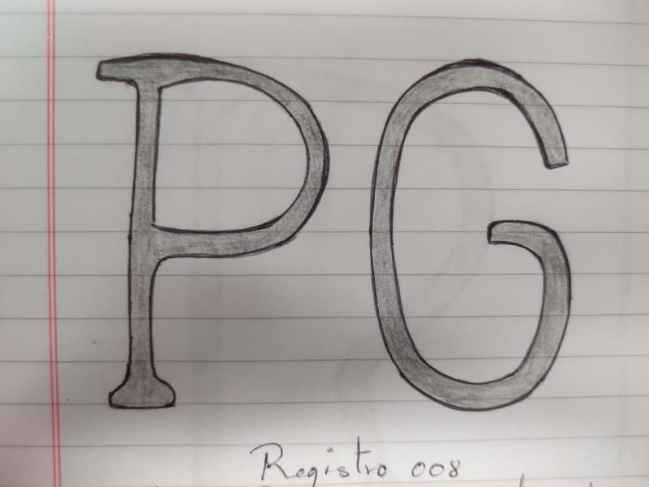 PG
Registro 008